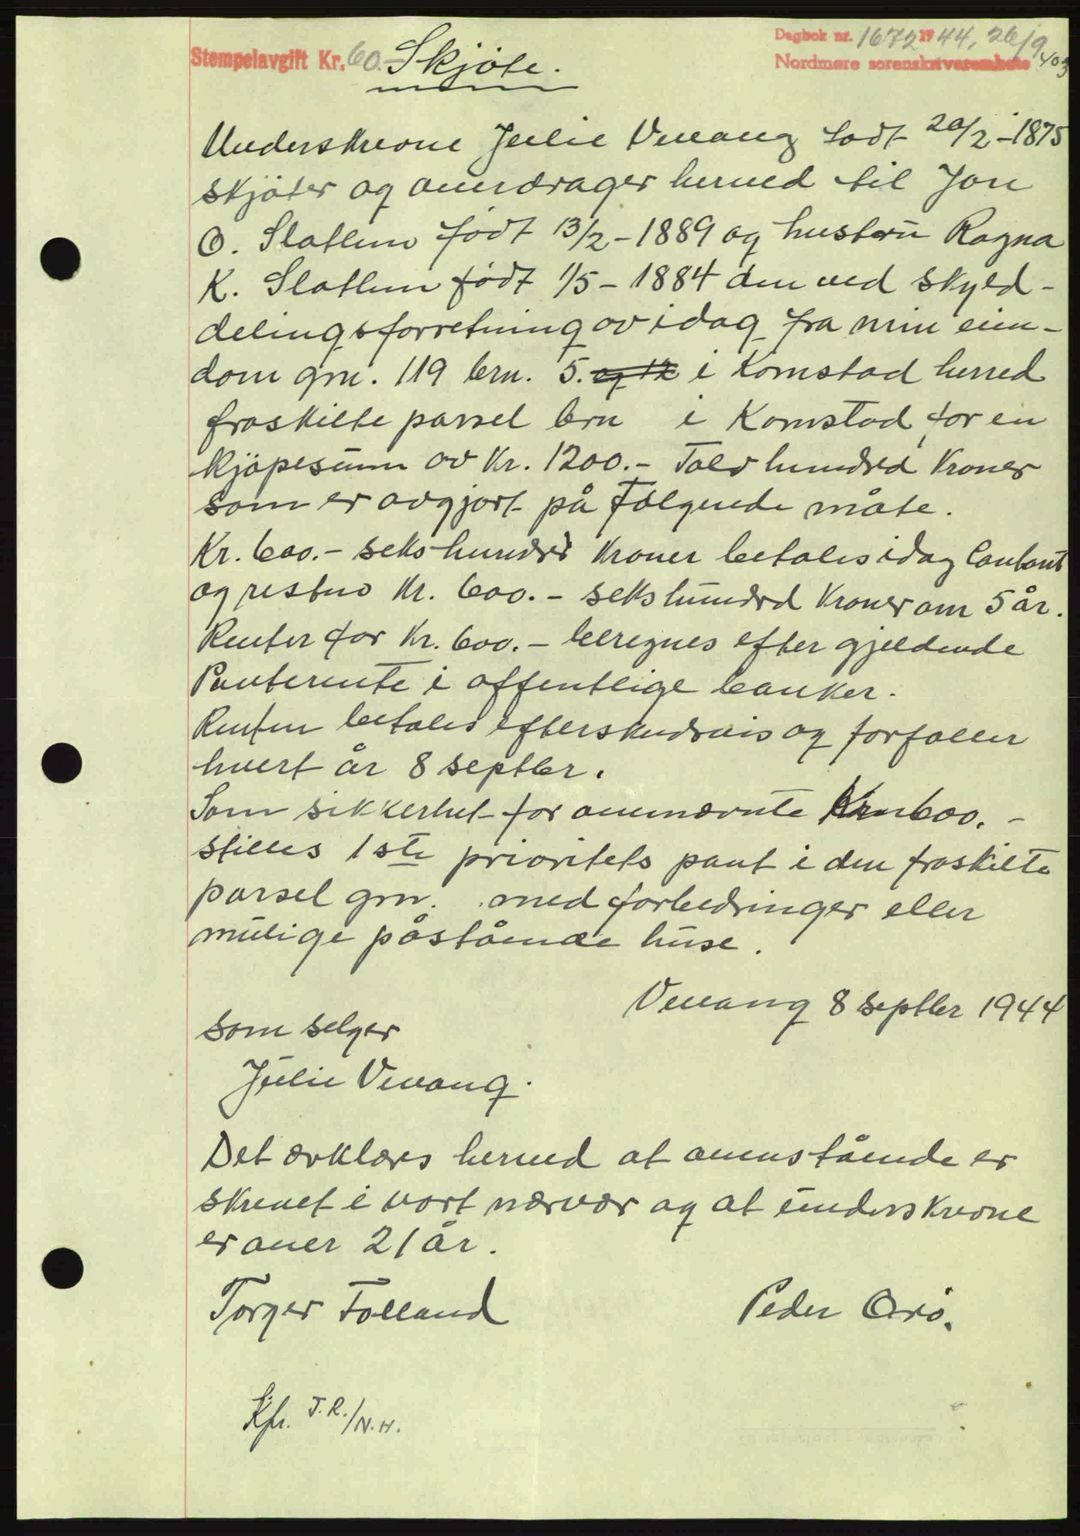 Stempelavgift Kr. 60.- Skjöte.
Dagbok nr. 1672 1944, 26/9
Nordmøre sorenskriverembete 403
Underskrevne Julie Vevang født 20/2-1875
skjöter og overdrager herved til Jon
O. Slatlem født 13/2-1889 og hustru Ragna
K. Slatlem født 1/5-1884 den ved skyld-
delingsforretning av idag fra min eien-
dom gnr. 119 brn. 5. og 12 i Kornstad herred
fraskilte parsel brn i Kornstad for en
kjöpesum av Kr. 1200.- Tolv hundred Kroner
som er avgjort på følgende måte.
Kr. 600.- sekshundred Kroner betales idag Contant
og resten Kr. 600.- sekshundred Kroner om 5 år.
Renter for Kr. 600.- beregnes efter gjeldende
Panterente i offentlige banker.
Renten betales efterskudsvis og forfaller
hvert år 8 septbr.
Som sikkerhet for ovennevnte Krn 600.-
stilles 1ste prioritets pant i den fraskilte
parsel gnr. med forbedringer eller
mulige påstående huse.
Vevang 8 septbr 1944
som selger
Julie Vevang.
Det erklæres herved at ovenstående er
skrevet i vort nærvær og at underskrevne
er over 21 år.
Torger Folland Peder Orö.
Kfr. T.R./N.H.